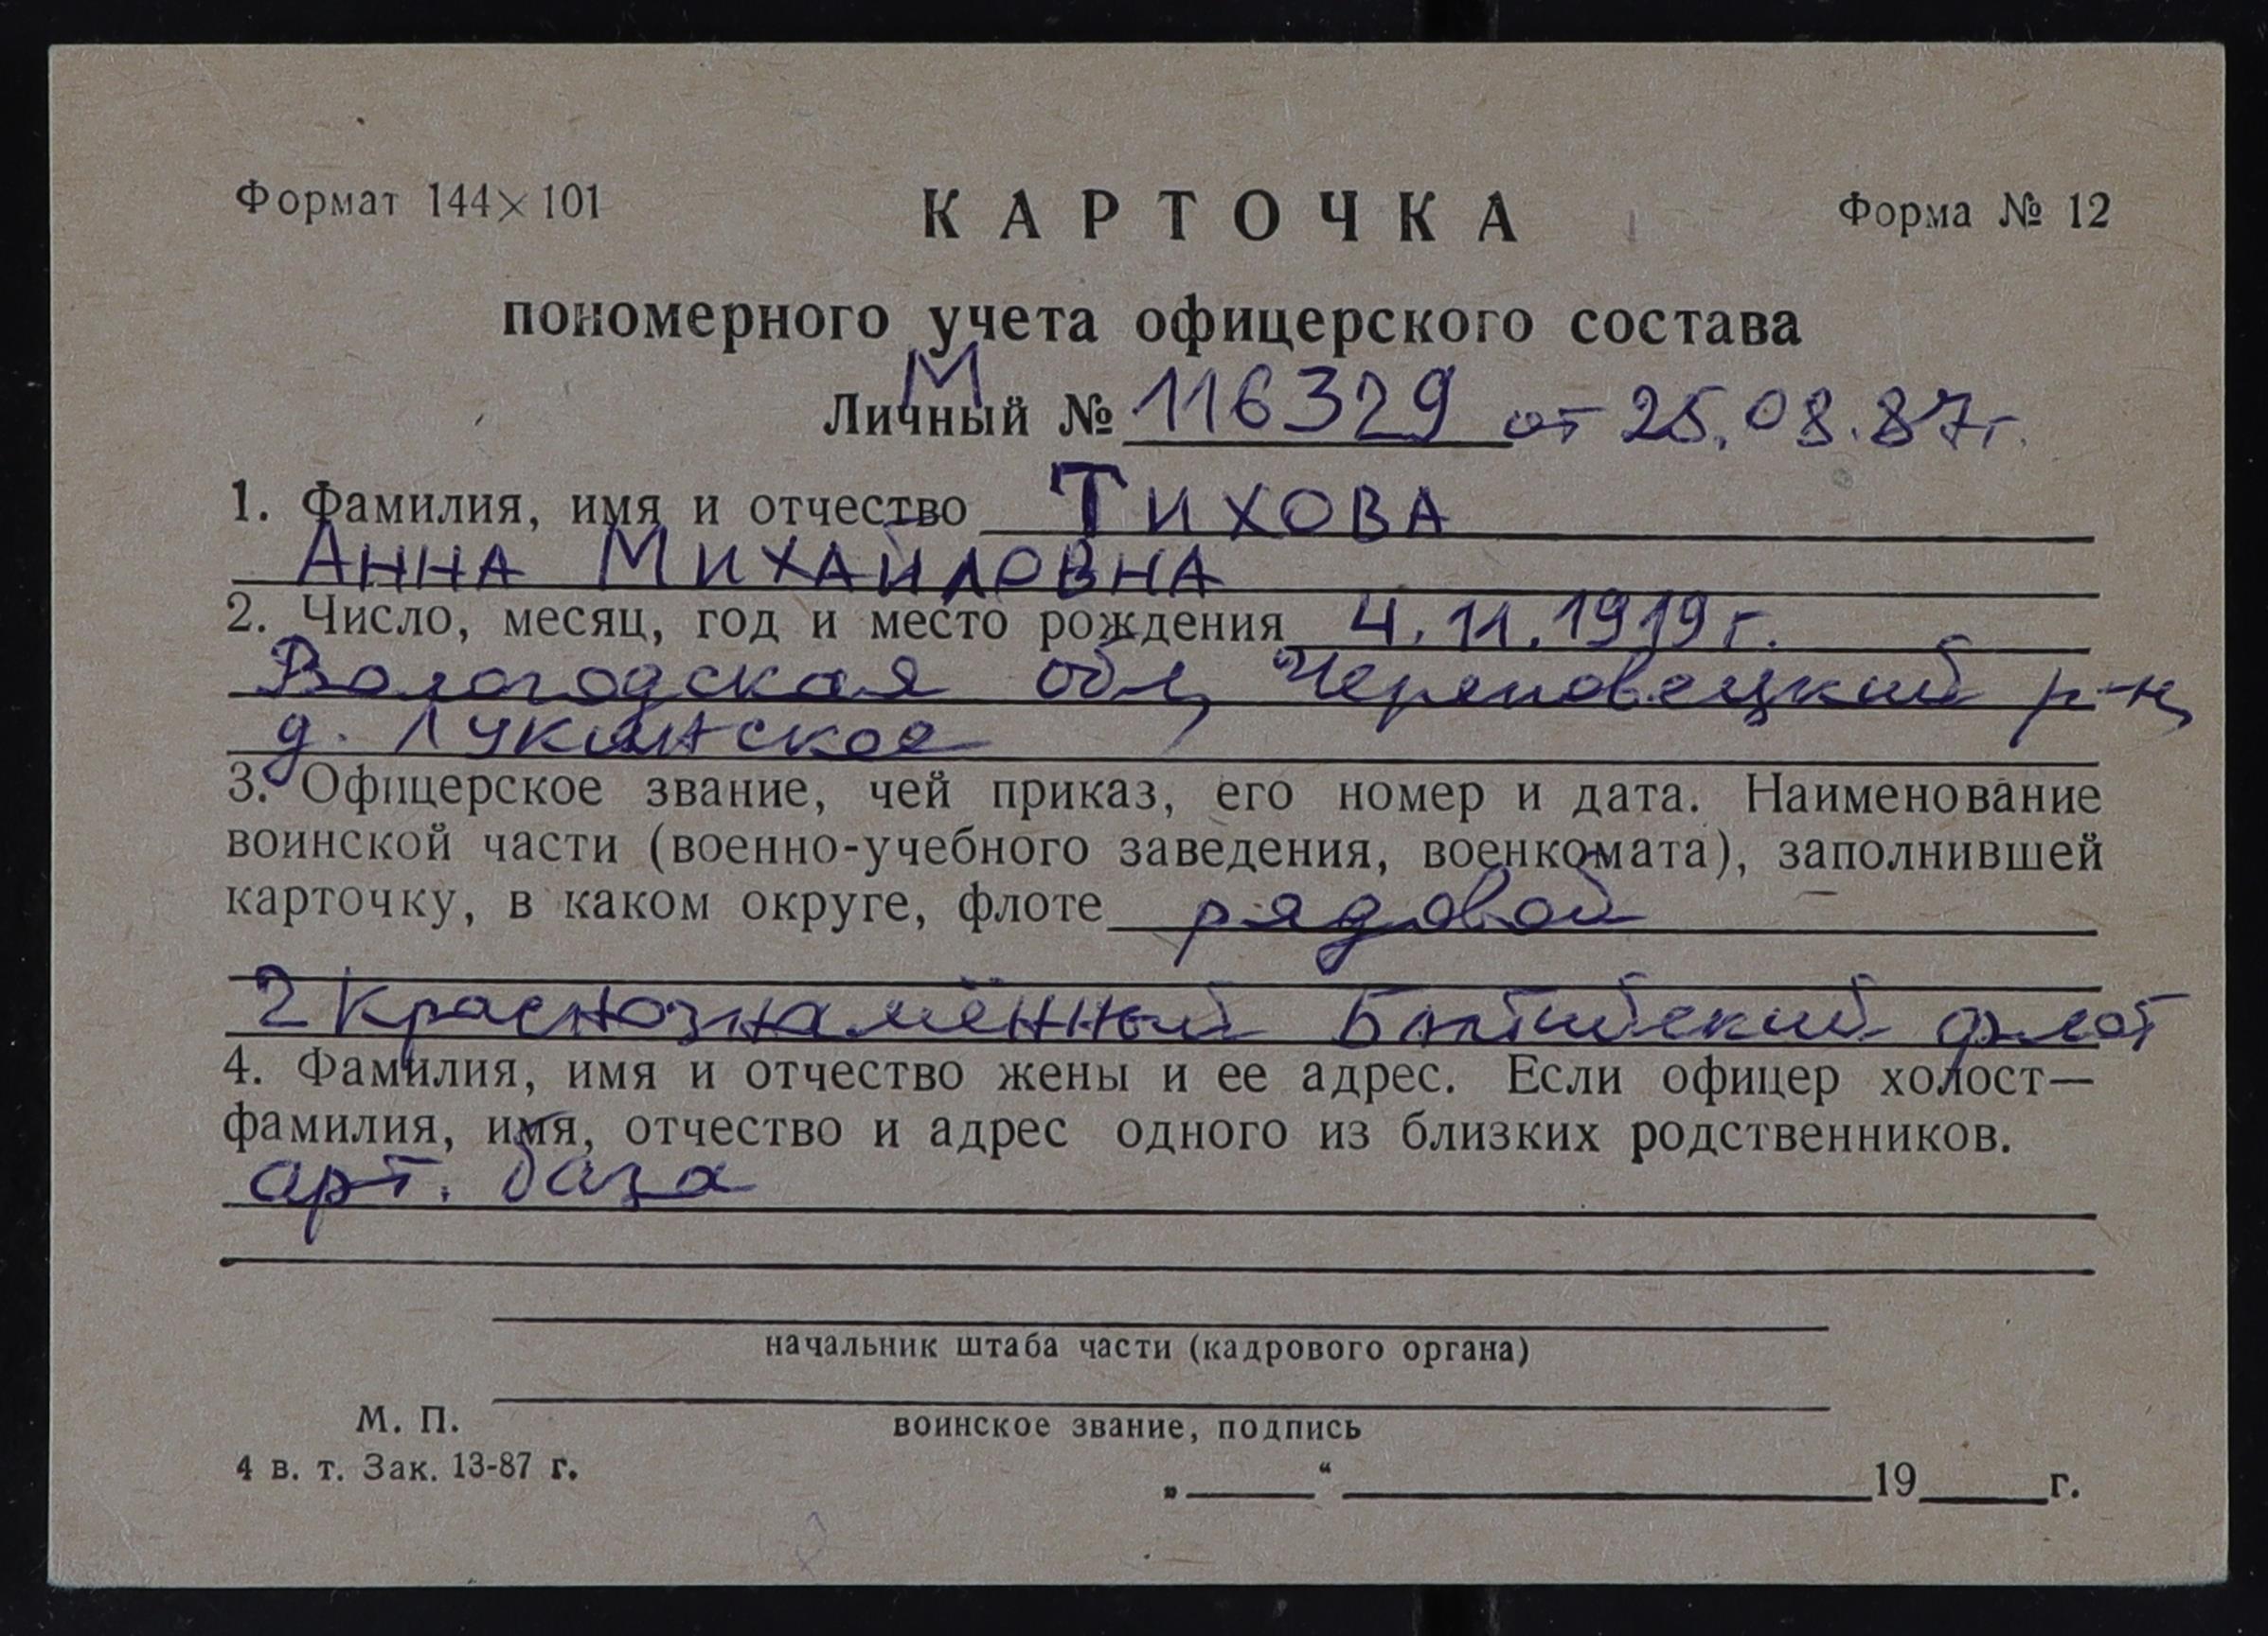 Формат 144×101
КАРТОЧКА
Форма № 12
пономерного учета офицерского состава
М
Личный № 116329 от 25.08.87г.
1. Фамилия, имя и отчество ТИХОВА
АННА МИХАЙЛОВНА
2. Число, месяц, год и место рождения 4.11.1919 г.
Вологодская обл, Череповецкий р-н,
д. Лукинское
3. Офицерское звание, чей приказ, его номер и дата. Наименование
воинской части (военно-учебного заведения, военкомата), заполнившей
карточку, в каком округе, флоте рядовой
2 Краснознамённый Балтийский флот
4. Фамилия, имя и отчество жены и ее адрес. Если офицер холост—
фамилия, имя, отчество и адрес одного из близких родственников.
арт. база
начальник штаба части (кадрового органа)
М. П.
воинское звание, подпись
4 в. т. Зак. 13-87 г.
„____“ ____________19____г.